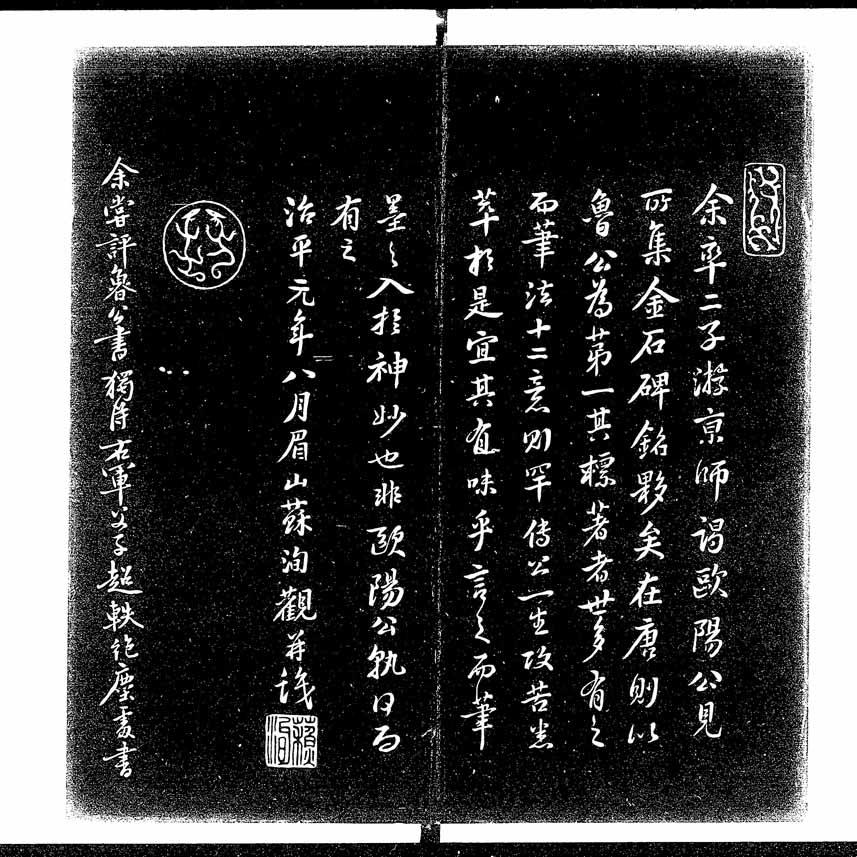 余率二子游京師謁歐陽公見
所集金石碑銘夥矣在唐則以
魯公為第一其標著者世多有之
而筆法十二意則罕傳公一生攻苦悉
萃於是宜其有味乎言之而筆
墨之入於神妙也非歐陽公孰曰而
有之
治平元年八月眉山蘇洵觀并識
蘇洵
余嘗評魯公書獨得右軍父子超軼絕塵處書